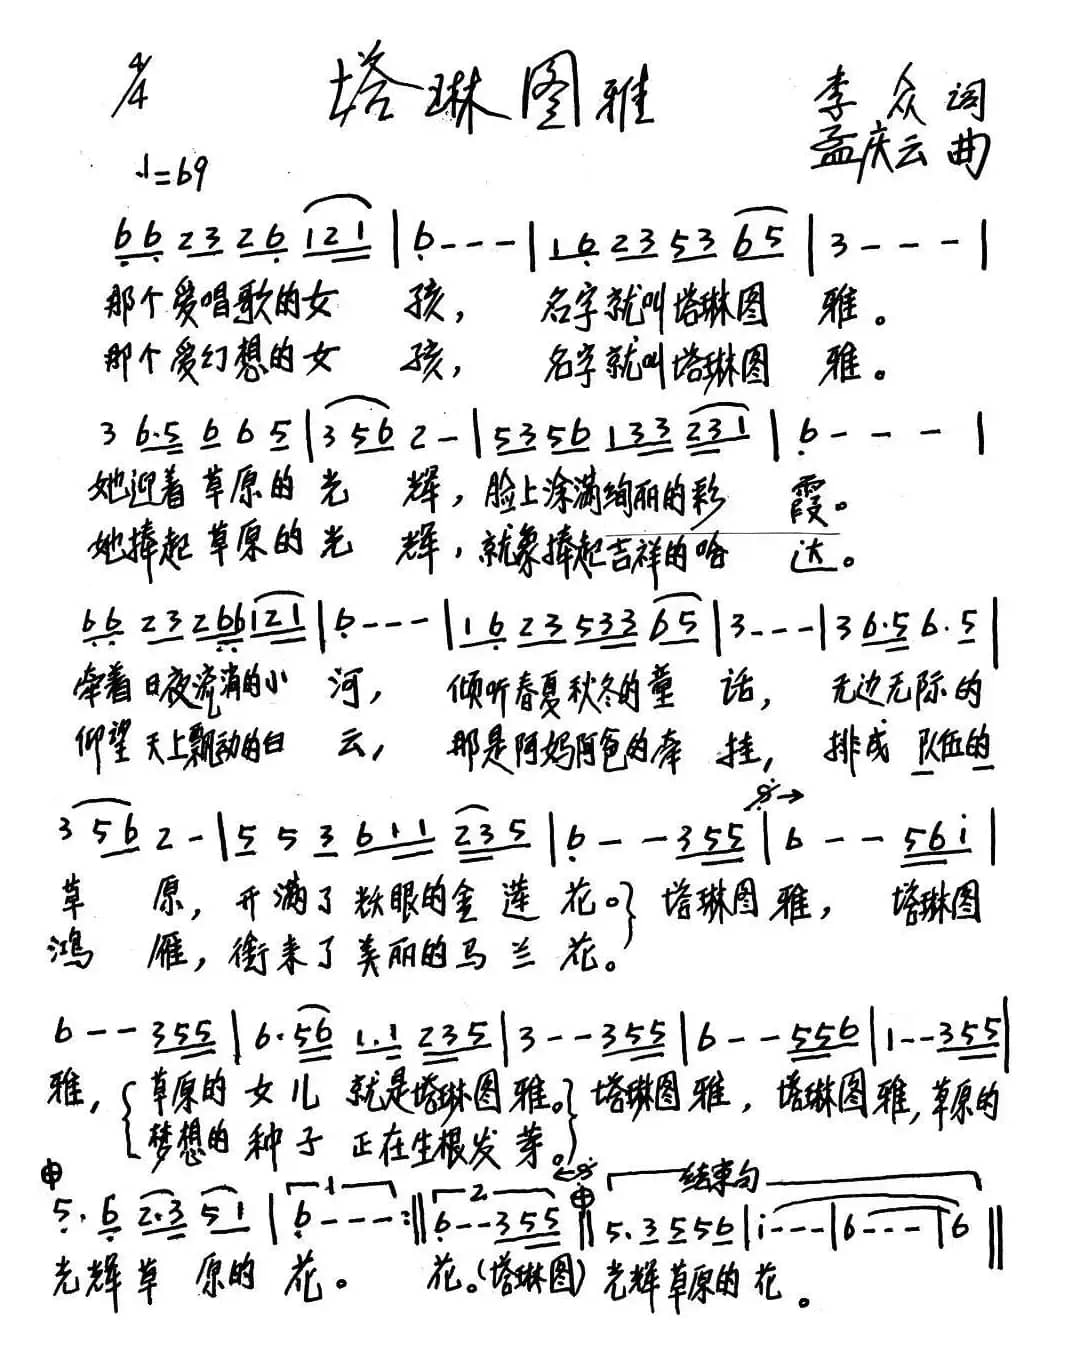 4/4 塔琳图雅 李众词
孟庆云曲
♩=69
6 6 2 3 2 6 1 2 1 | 6 - - - | 1 6 2 3 5 3 6 5 | 3 - - - |
那个爱唱歌的女 孩， 名字就叫塔琳图 雅。
那个爱幻想的女 孩， 名字就叫塔琳图 雅。
3 6·5 6 6 5 | 3 5 6 2 - | 5 3 5 6 1 3 3 2 3 1 | 6 - - - |
她迎着草原的光 辉，脸上涂满绚丽的彩 霞。
她捧起草原的光 辉，就象捧起吉祥的哈 达。
6 6 2 3 2 6 6 1 2 1 | 6 - - - | 1 6 2 3 5 3 3 6 5 | 3 - - - | 3 6·5 6·5 |
牵着日夜流淌的小 河， 倾听春夏秋冬的童 话， 无边无际的
仰望天上飘动的白 云， 那是阿妈阿爸的牵 挂， 排成队伍的
3 5 6 2 - | 5 5 3 6 1 1 2 3 5 | 6 - - 3 5 5 | 6 - - 5 6 i |
草 原，开满了耀眼的金莲 花。} 塔琳图雅， 塔琳图
鸿 雁，衔来了美丽的马兰 花。
6 - - 3 5 5 | 6·5 6 1·1 2 3 5 | 3 - - 3 5 5 | 6 - - 5 5 6 | 1 - - 3 5 5 |
雅，{草原的女儿 就是塔琳图雅。} 塔琳图雅，塔琳图雅，草原的
梦想的种子 正在生根发芽。
1 2 结束句
5·6 2·3 5 1 | 6 - - - :‖ 6 - - 3 5 5 ‖ 5·3 5 5 6 | i - - - | 6 - - - | 6 ‖
光辉草 原的 花。 花。(塔琳图) 光辉草原的花。